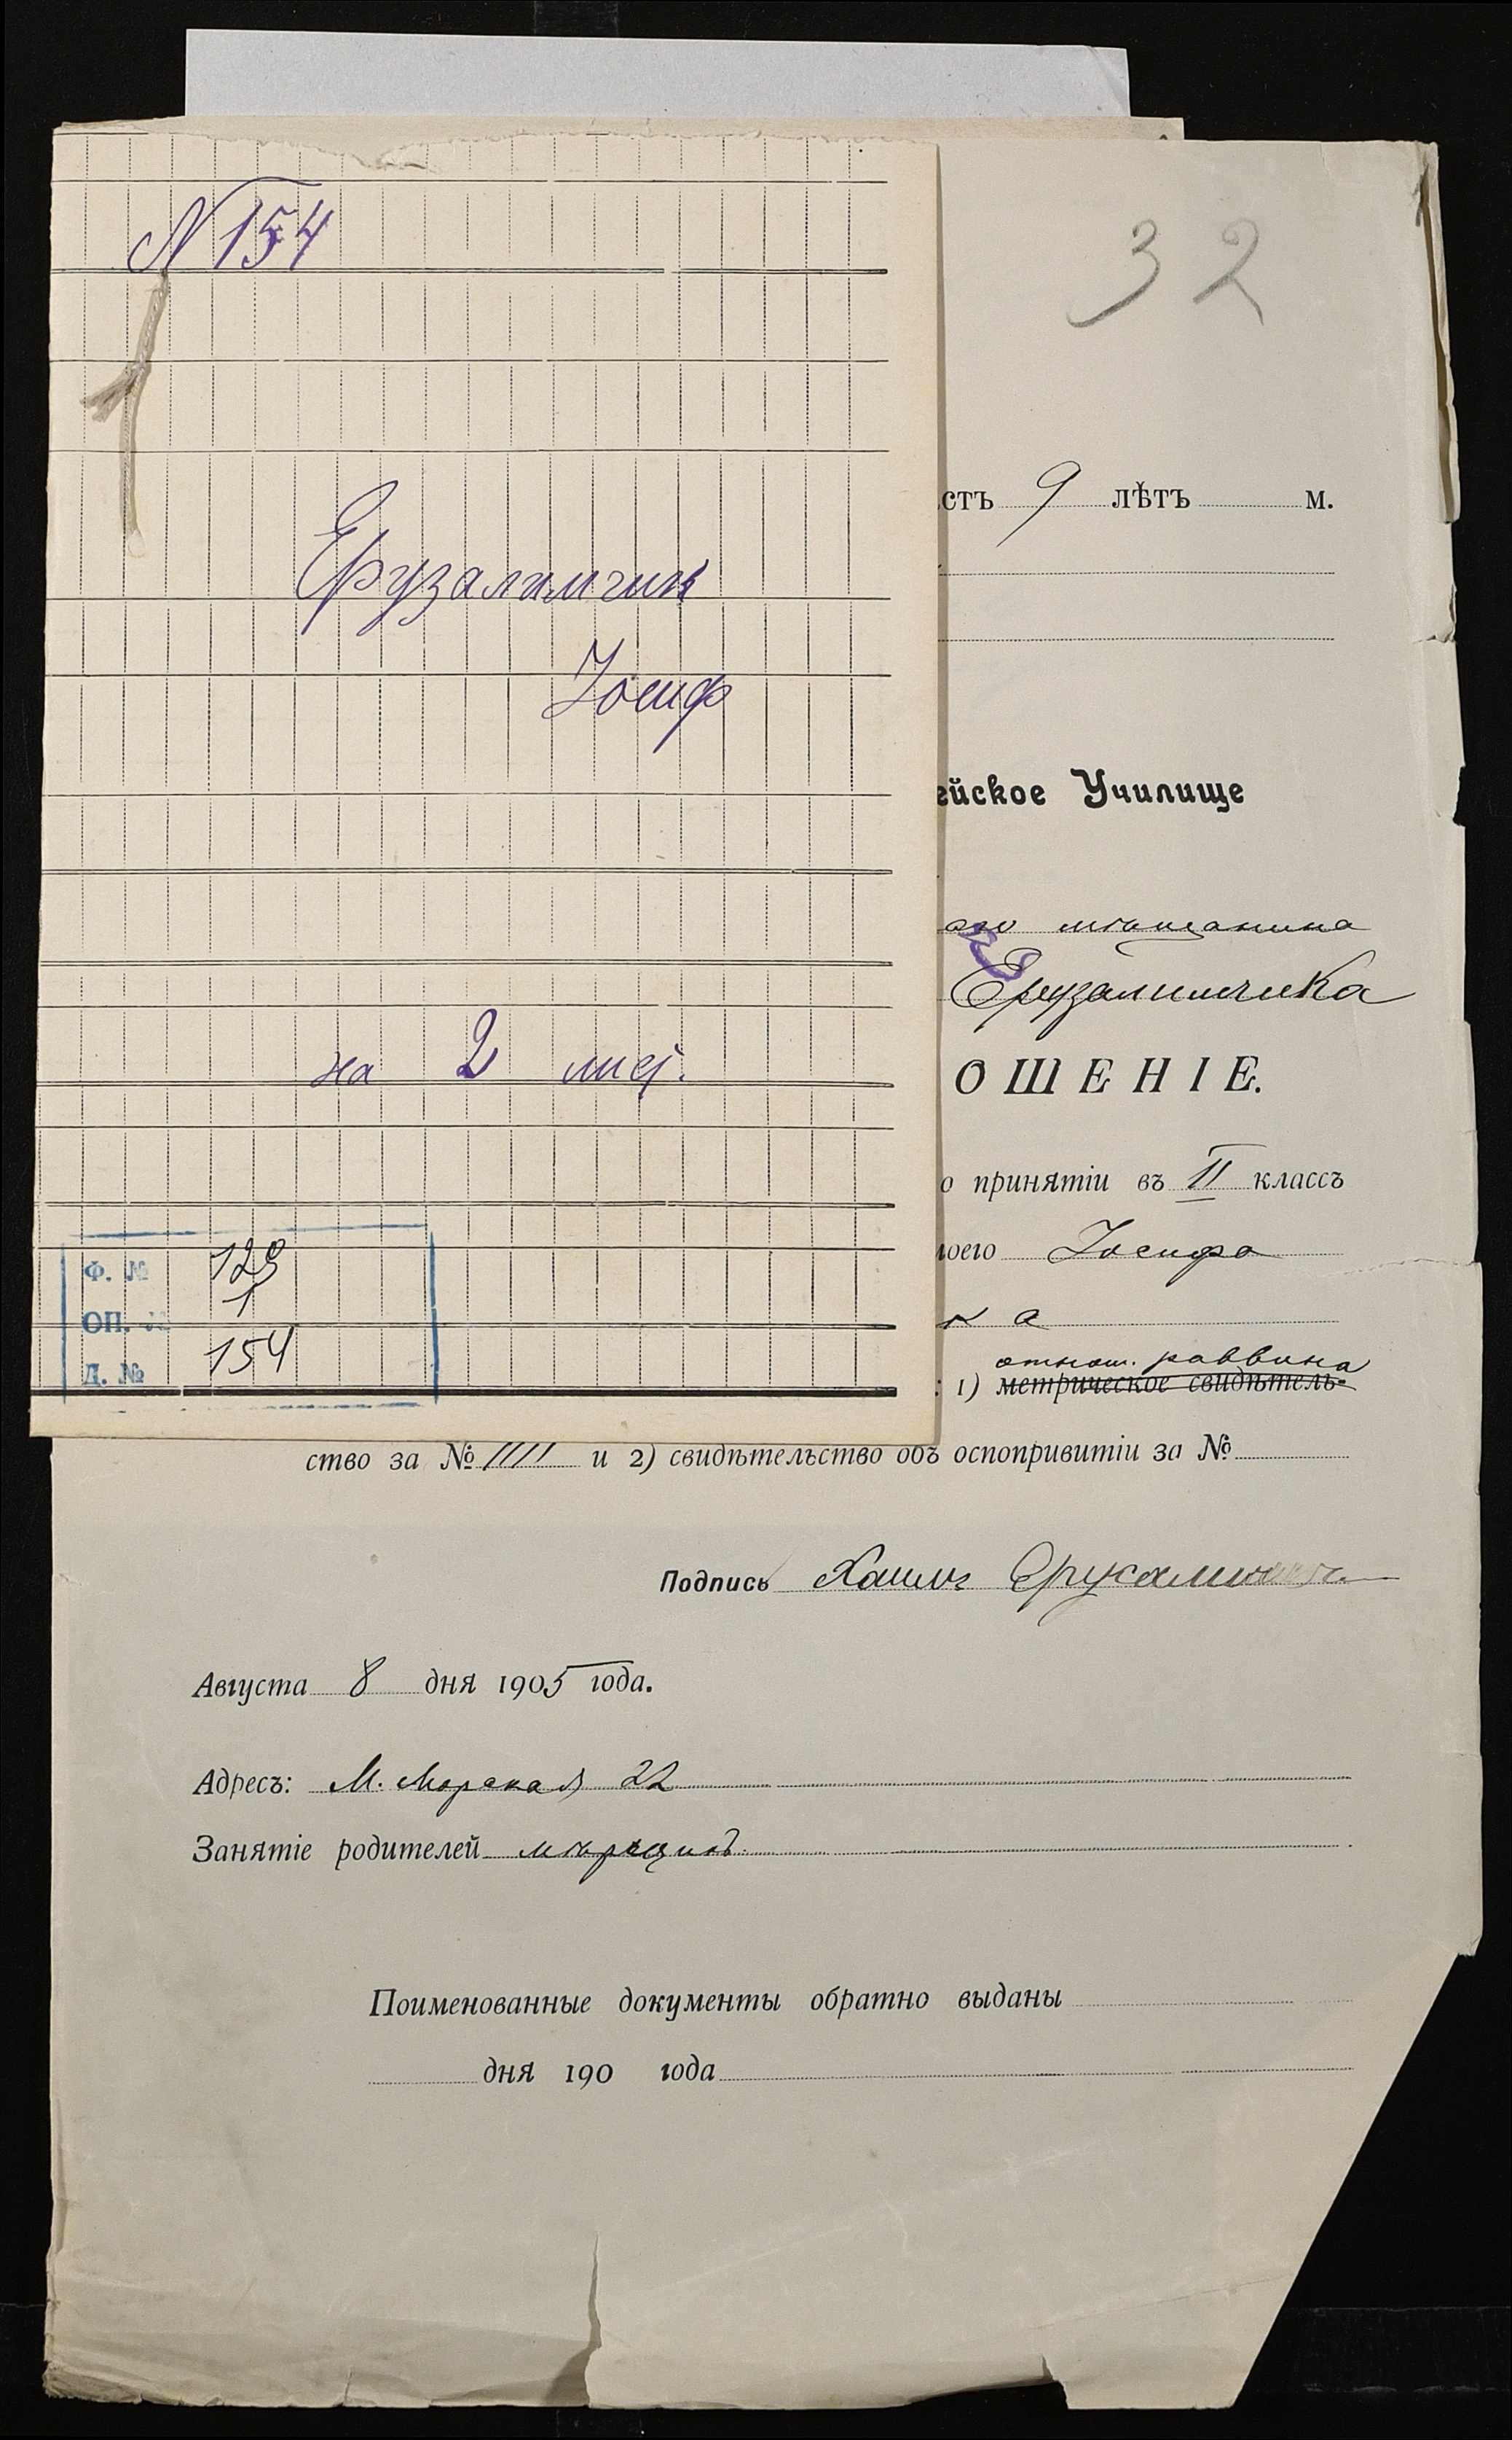 N 154
Ерузалимчик
Іосиф
на 2 лис.
Ф. № 129
ОП. № 1
Д. № 154
32
стъ 9 лѣтъ м.
ейское Училище
аго мѣщанина
Ерузалимчика
ОШЕНІЕ.
о принятіи въ II классъ
моего Іосифа
к а
отнош. раввина
: 1) метрическое свидѣтель-
ство за № 1111 и 2) свидѣтельство объ оспопривитіи за №
Подпись Хаимъ
Августа 8 дня 1905 года.
Адресъ: М. Морская 22
Занятіе родителей
Поименованные документы обратно выданы
дня 190 года